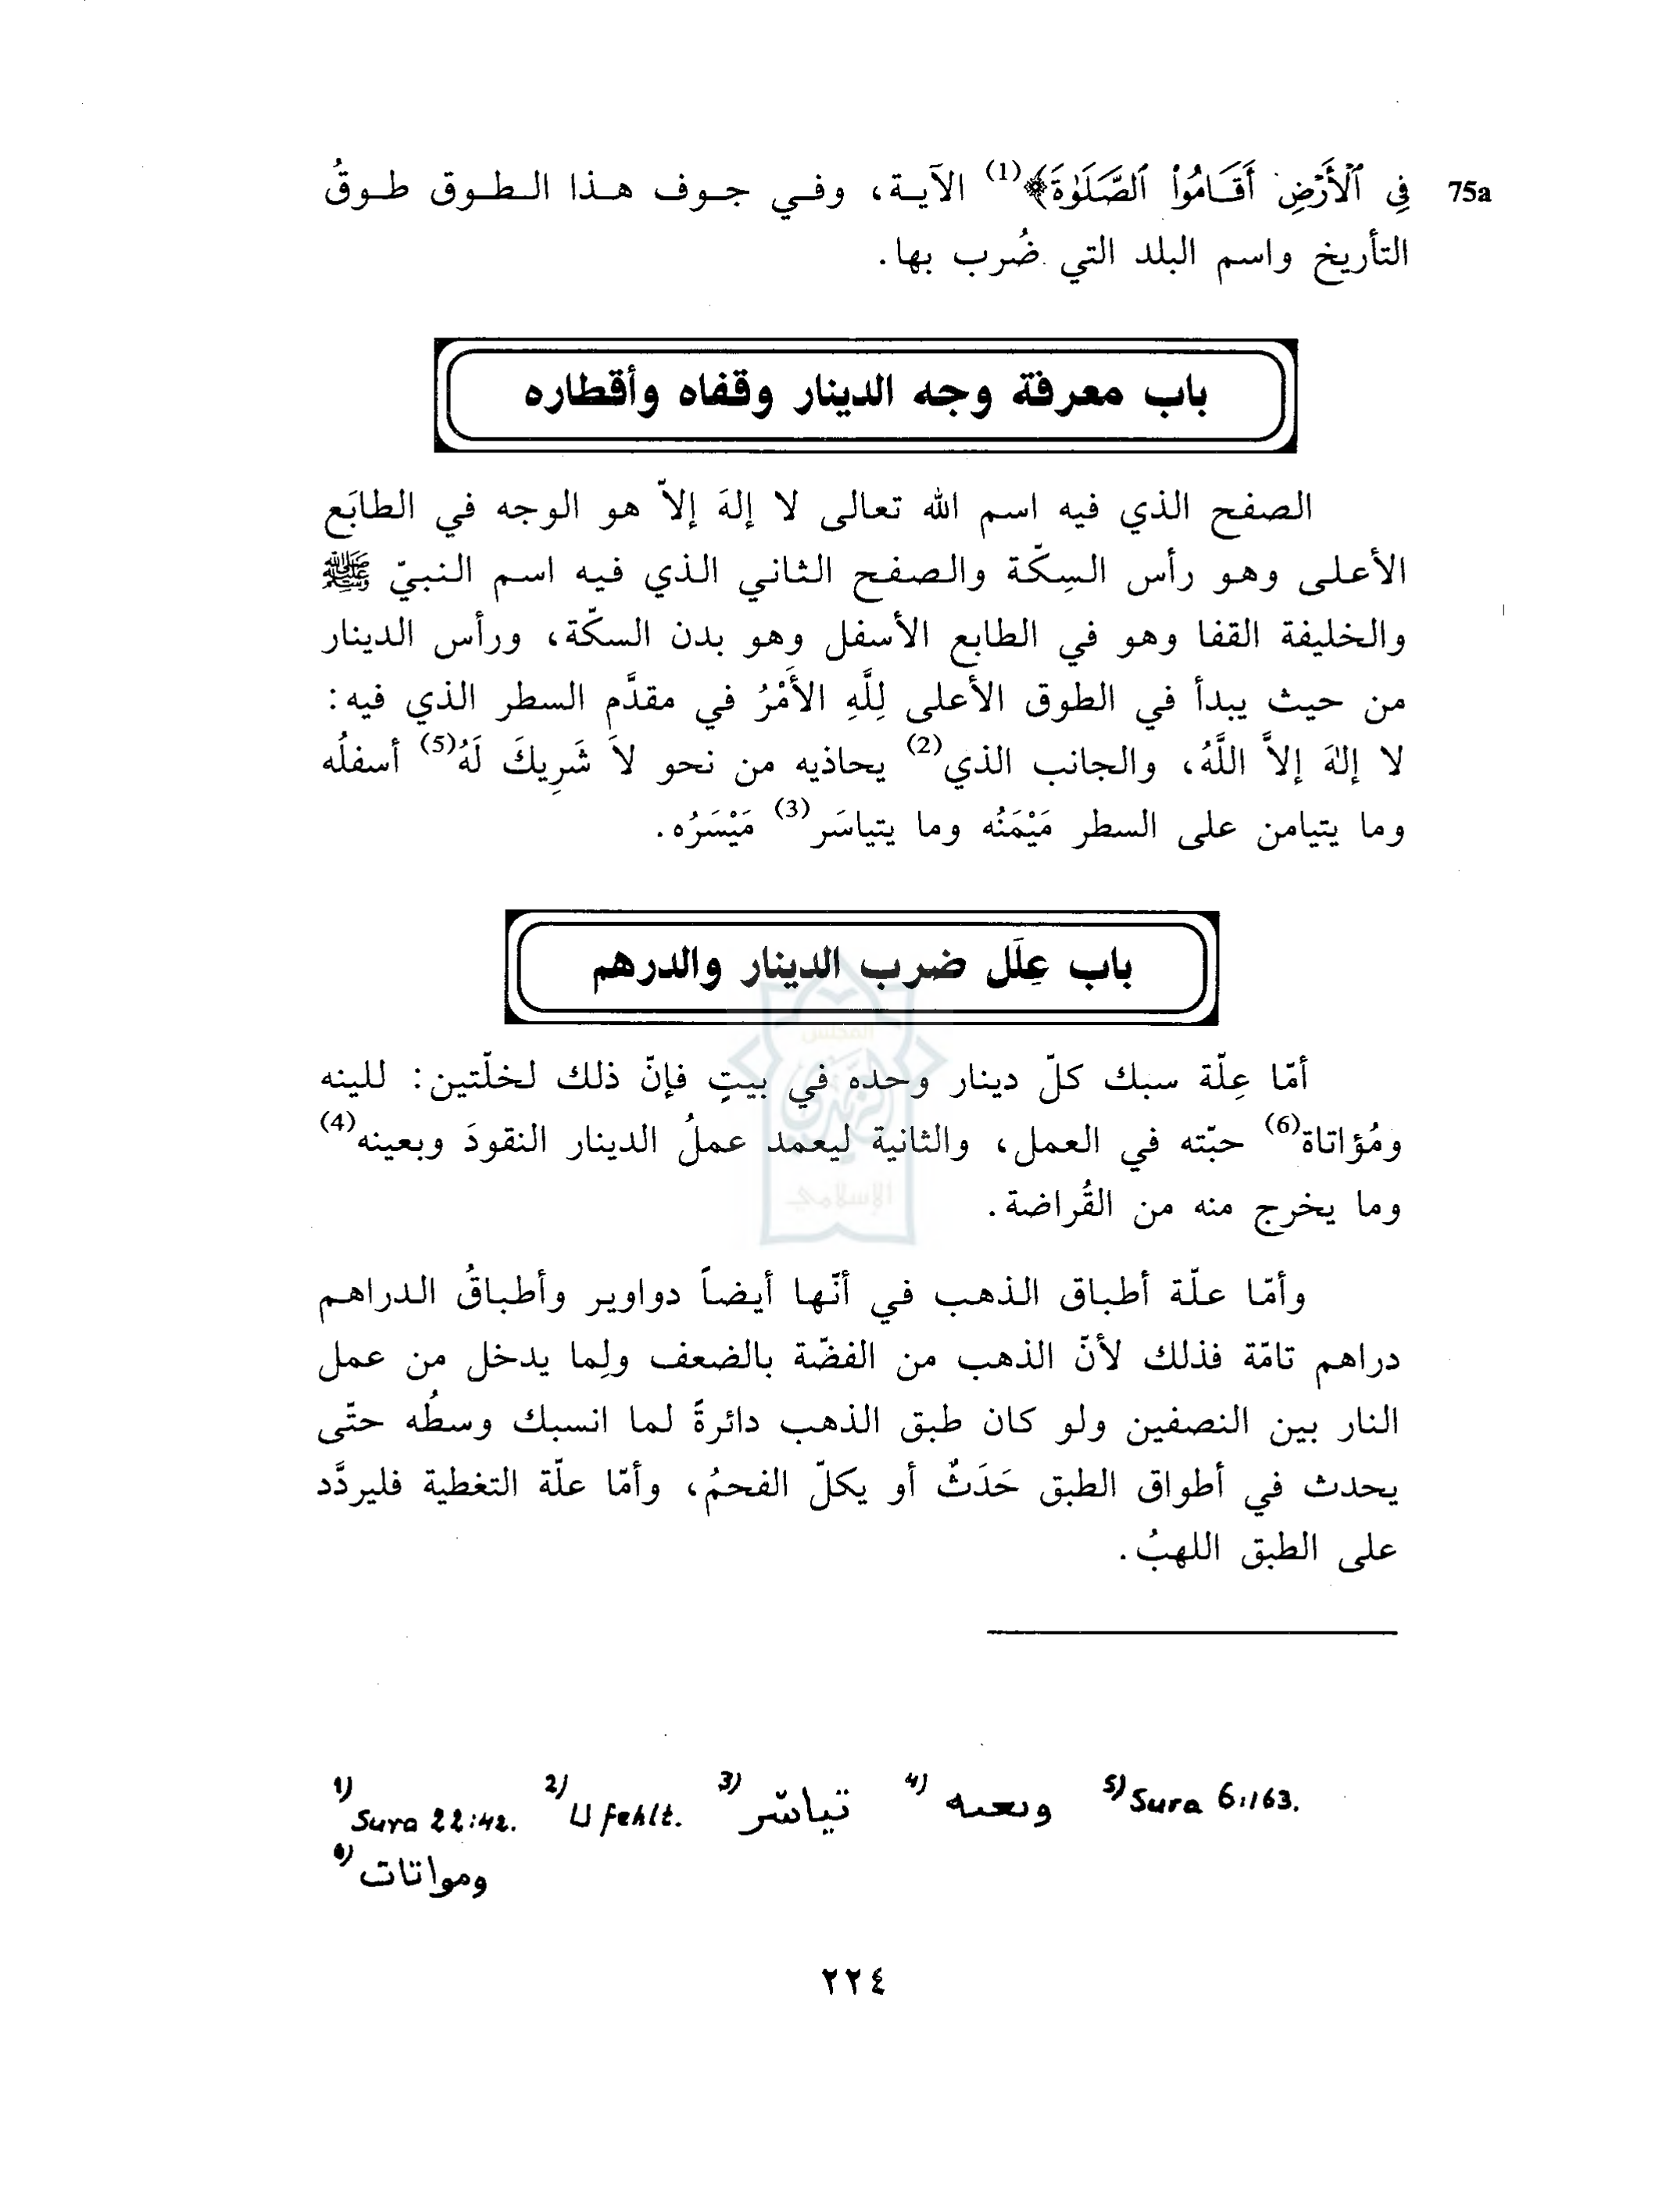 75a فِي ٱلْأَرْضِ أَقَامُواْ ٱلصَّلَوٰةَ﴾(1) الآية، وفي جوف هذا الطوق طوقُ
التأريخ واسم البلد التي ضُرب بها.
باب معرفة وجه الدينار وقفاه وأقطاره
الصفح الذي فيه اسم الله تعالى لا إلهَ إلاّ هو الوجه في الطابَع
الأعلى وهو رأس السِكّة والصفح الثاني الذي فيه اسم النبيّ ﷺ
والخليفة القفا وهو في الطابع الأسفل وهو بدن السكّة، ورأس الدينار
من حيث يبدأ في الطوق الأعلى لِلَّهِ الأَمْرُ في مقدَّم السطر الذي فيه:
لا إلهَ إلاَّ اللَّهُ، والجانب الذي(2) يحاذيه من نحو لاَ شَرِيكَ لَهُ(5) أسفلُه
وما يتيامن على السطر مَيْمَنُه وما يتياسَر(3) مَيْسَرُه.
باب عِلَل ضرب الدينار والدرهم
أمّا عِلّة سبك كلّ دينار وحده في بيتٍ فإنّ ذلك لخلّتين: للينه
ومُؤاتاة(6) حبّته في العمل، والثانية ليعمد عملُ الدينار النقودَ وبعينه(4)
وما يخرج منه من القُراضة.
وأمّا علّة أطباق الذهب في أنّها أيضاً دواوير وأطباقُ الدراهم
دراهم تامّة فذلك لأنّ الذهب من الفضّة بالضعف ولِما يدخل من عمل
النار بين النصفين ولو كان طبق الذهب دائرةً لما انسبك وسطُه حتّى
يحدث في أطواق الطبق حَدَثٌ أو يكلّ الفحمُ، وأمّا علّة التغطية فليردَّد
على الطبق اللهبُ.
1) Sura 22:42. 2) U fehlt. 3) تياسّر 4) وبعىىه 5) Sura 6:163.
6) ومواتات
٢٢٤
المجلس
الزيدي
الإسلامي